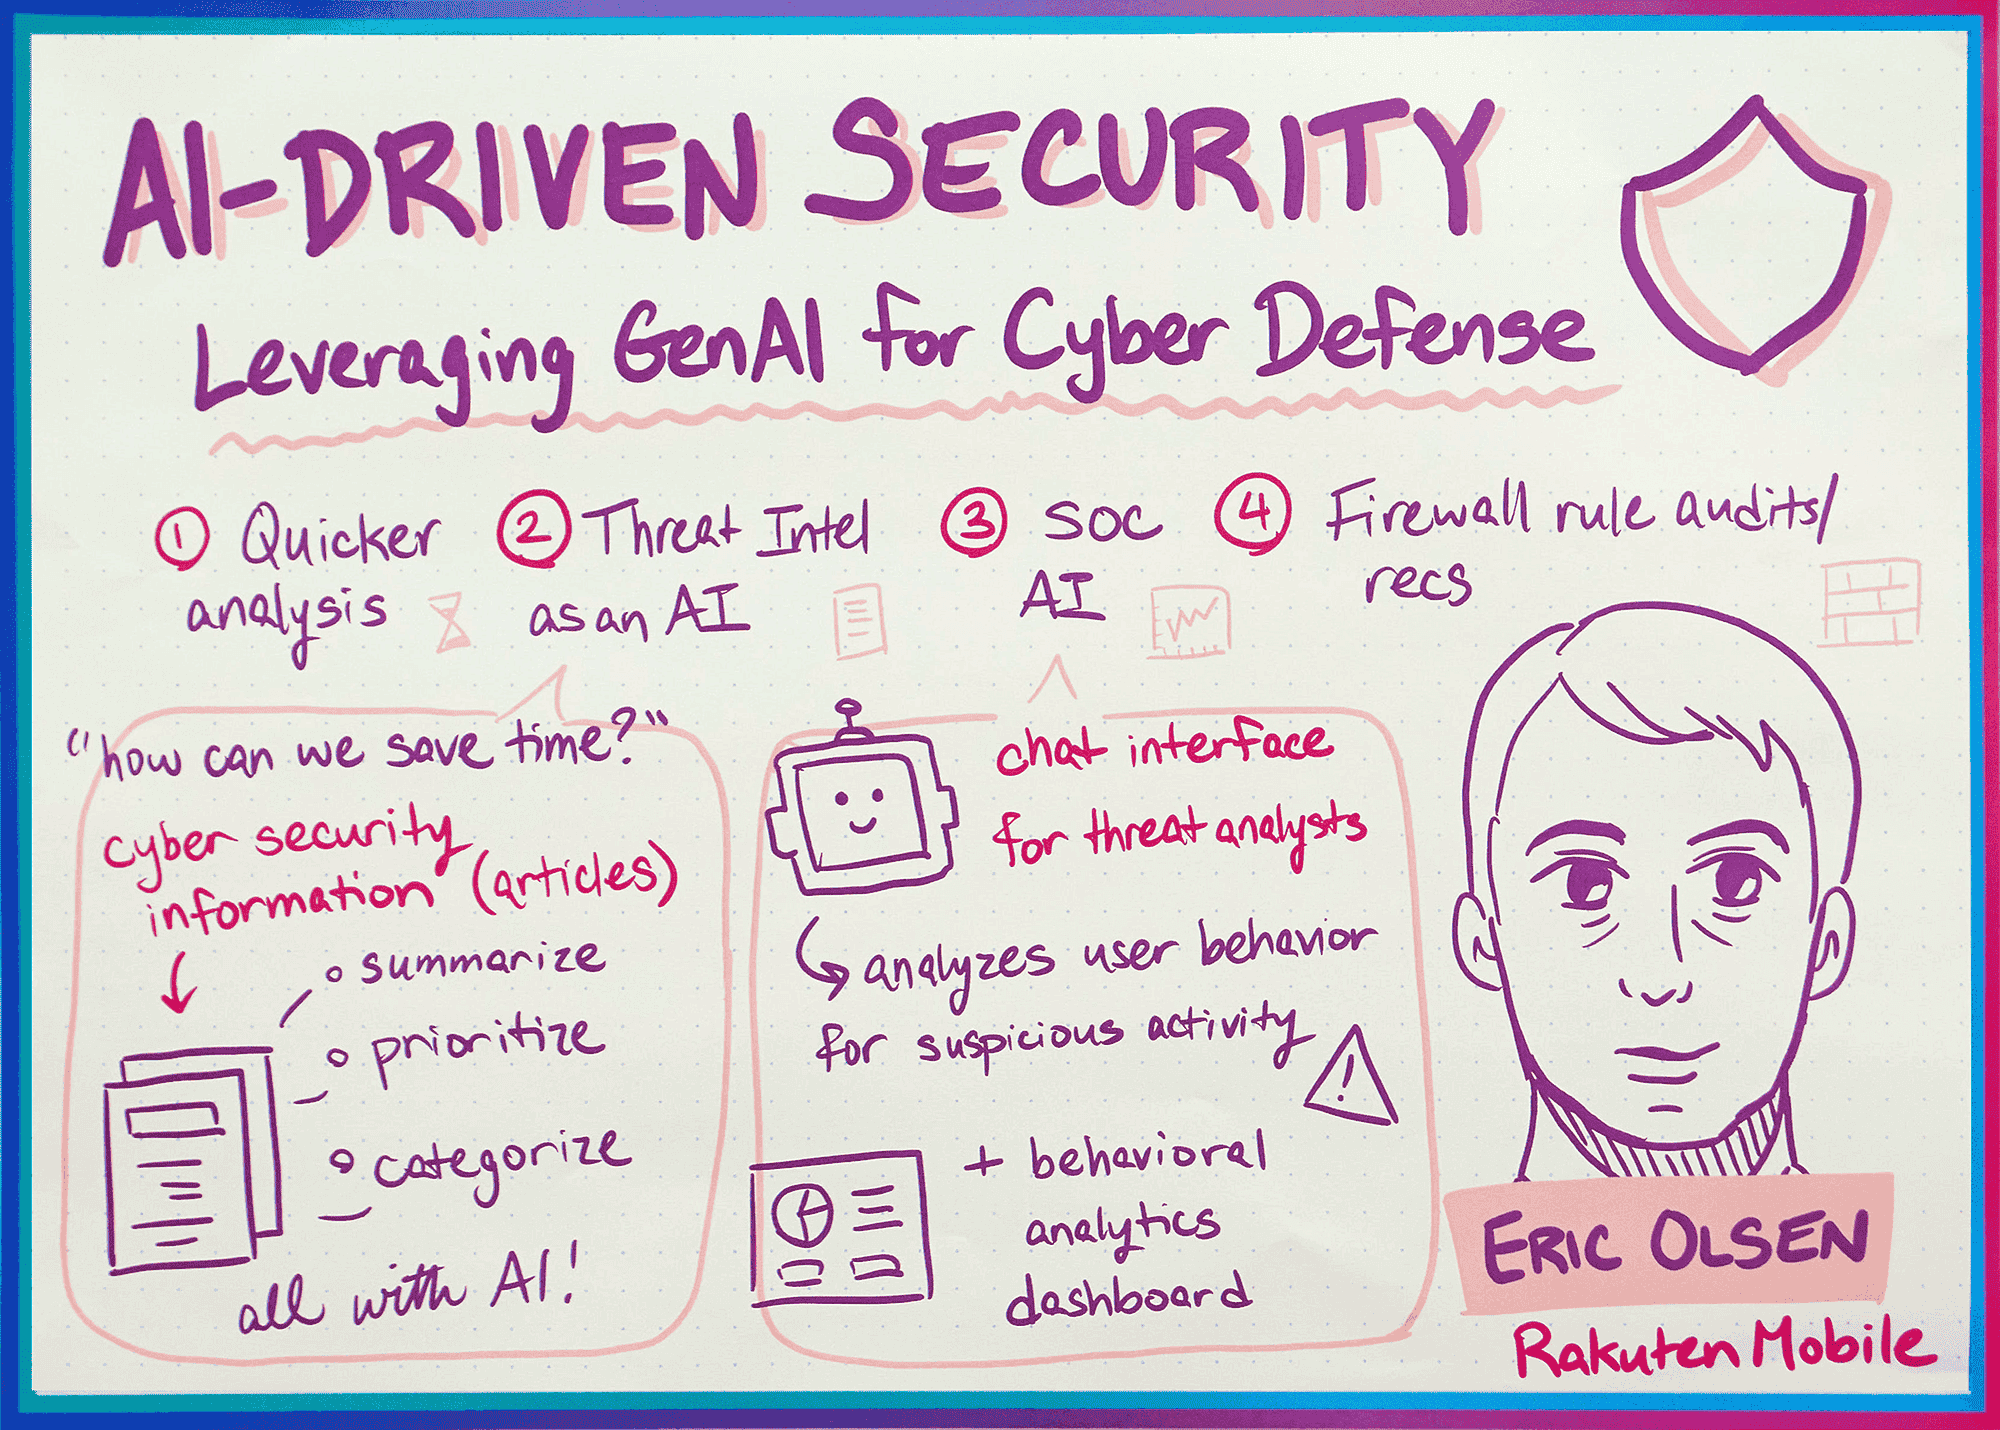 AI-DRIVEN SECURITY
Leveraging GenAI for Cyber Defense
1 Quicker
analysis
2 Threat Intel
as an AI
3 SOC
AI
4 Firewall rule audits/
recs
"how can we save time?"
cyber security
information (articles)
summarize
prioritize
categorize
all with AI!
chat interface
for threat analysts
analyzes user behavior
for suspicious activity
!
+ behavioral
analytics
dashboard
ERIC OLSEN
Rakuten Mobile